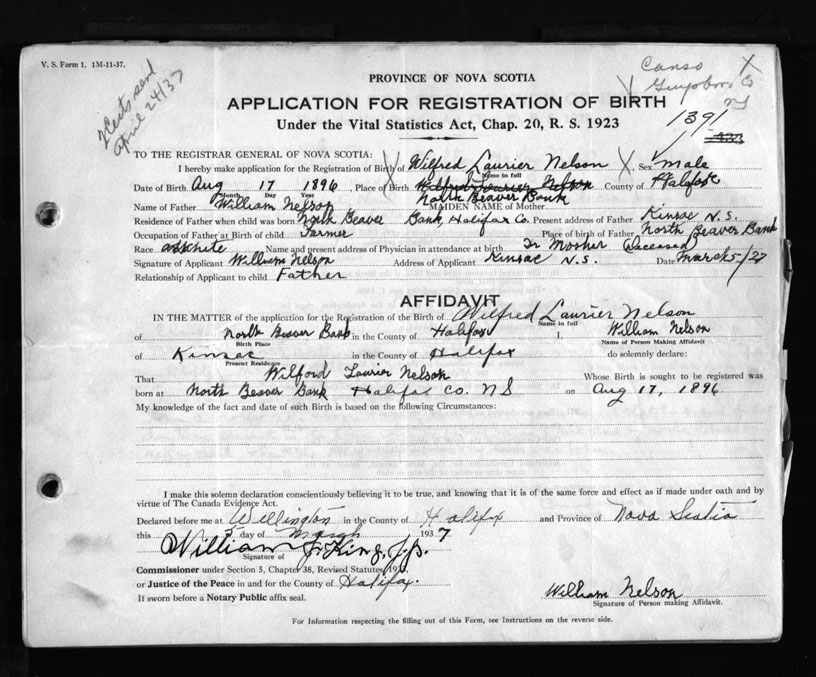 V. S. Form 1. 1M-11-37.
2 Certs send
April 24/37
Canso X
Guysboro Co
PROVINCE OF NOVA SCOTIA
APPLICATION FOR REGISTRATION OF BIRTH
Under the Vital Statistics Act, Chap. 20, R. S. 1923
1391
TO THE REGISTRAR GENERAL OF NOVA SCOTIA:
I hereby make application for the Registration of Birth of Wilfred Laurier Nelson Sex Male
Name in full
Date of Birth Aug 17 1896, Place of Birth Wilfred Laurier Nelson County of Halifax
Month Day Year North Beaver Bank
Name of Father William Nelson MAIDEN NAME of Mother
Residence of Father when child was born North Beaver Bank, Halifax Co. Present address of Father Kinsac N.S.
Occupation of Father at Birth of child Farmer Place of birth of Father North Beaver Bank
Race White Name and present address of Physician in attendance at birth Dr Mosher (Deceased)
Signature of Applicant William Nelson Address of Applicant Kinsac N.S. Date March 5/37
Relationship of Applicant to child Father
AFFIDAVIT
IN THE MATTER of the application for the Registration of the Birth of Wilfred Laurier Nelson
Name in full
of North Beaver Bank in the County of Halifax I, William Nelson
Birth Place Name of Person Making Affidavit
of Kinsac in the County of Halifax do solemnly declare:
Present Residence
That Wilford Laurier Nelson Whose Birth is sought to be registered was
born at North Beaver Bank Halifax Co. NS on Aug 17, 1896
My knowledge of the fact and date of such Birth is based on the following Circumstances:
I make this solemn declaration conscientiously believing it to be true, and knowing that it is of the same force and effect as if made under oath and by
virtue of The Canada Evidence Act.
Declared before me at Wellington in the County of Halifax and Province of Nova Scotia
this 5 day of March 1937
William J. King, J.P.
Signature of
Commissioner under Section 5, Chapter 38, Revised Statutes 1923.
or Justice of the Peace in and for the County of Halifax.
If sworn before a Notary Public affix seal.
William Nelson
Signature of Person making Affidavit.
For Information respecting the filling out of this Form, see Instructions on the reverse side.